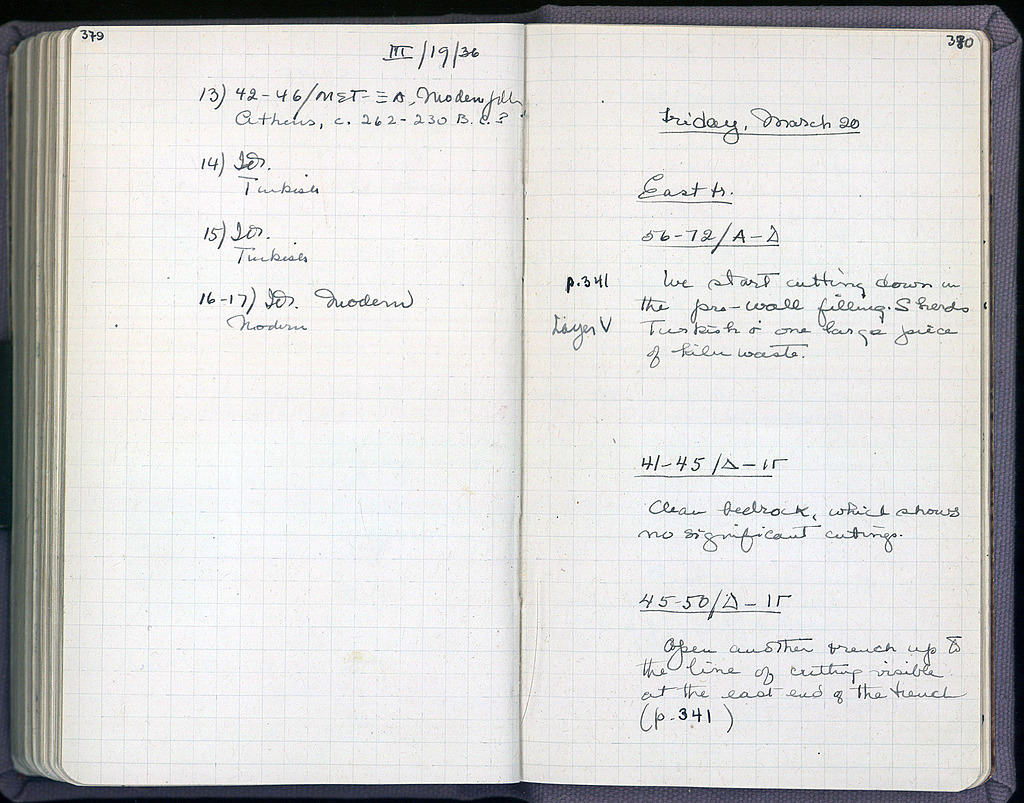 379
III/19/36
13) 42-46/ΜΣΤ-ΞΑ, Modern fill
Athens, c. 262-230 B.C.?
14) Id.
Turkish
15) Id.
Turkish
16-17) Id. Modern
Modern
380
Friday, March 20
East tr.
56-72/Α-Δ
p.341
We start cutting down in
the pro-wall filling. Sherds
Layer V
Turkish & one large piece
of kiln waste.
41-45/Δ-ΙΓ
Clean bedrock, which shows
no significant cuttings.
45-50/Δ-ΙΓ
Open another trench up to
the line of cutting visible
at the east end of the trench
(p.341)